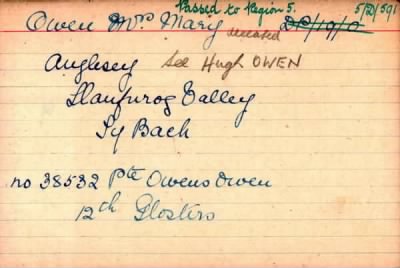 Passed to Region 5. 5/D/591
Owen Mrs Mary deceased DP/19/0
Anglsey See Hugh OWEN
Llanfwrog Valley
Ty Bach
no 38532 Pte Owens Owen
12th Glosters